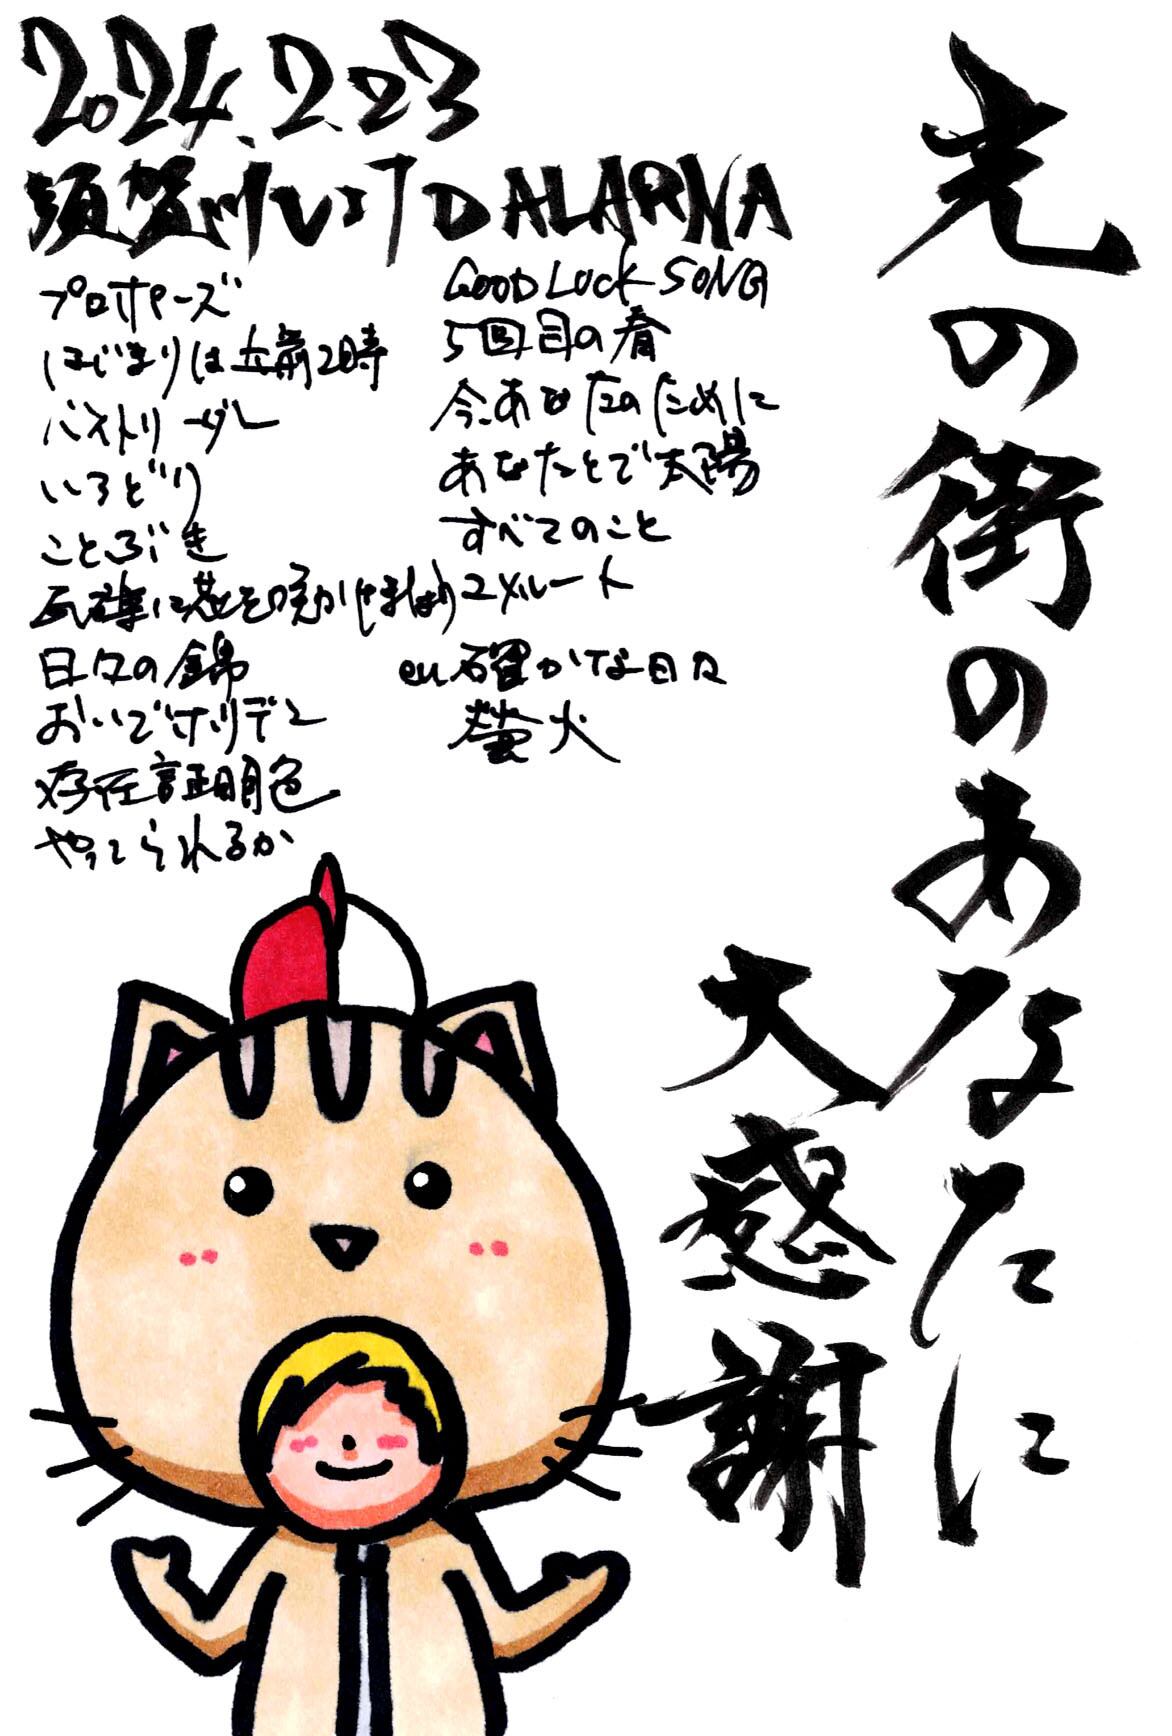 2024.2.23
須賀川ビリTD ALARNA
プロポーズ
はじまりは午前2時
バンドリーダー
いろどり
ことぶき
瓦礫に花を咲かせましょう
日々の錦
おいでホリデー
存在証明色
やってられるか
GOOD LUCK SONG
5回目の春
今、あなたのために
あなたとで太陽
すべてのこと
ユメルート
en.確かな日々
蛍火
光の街のあなたに
大感謝